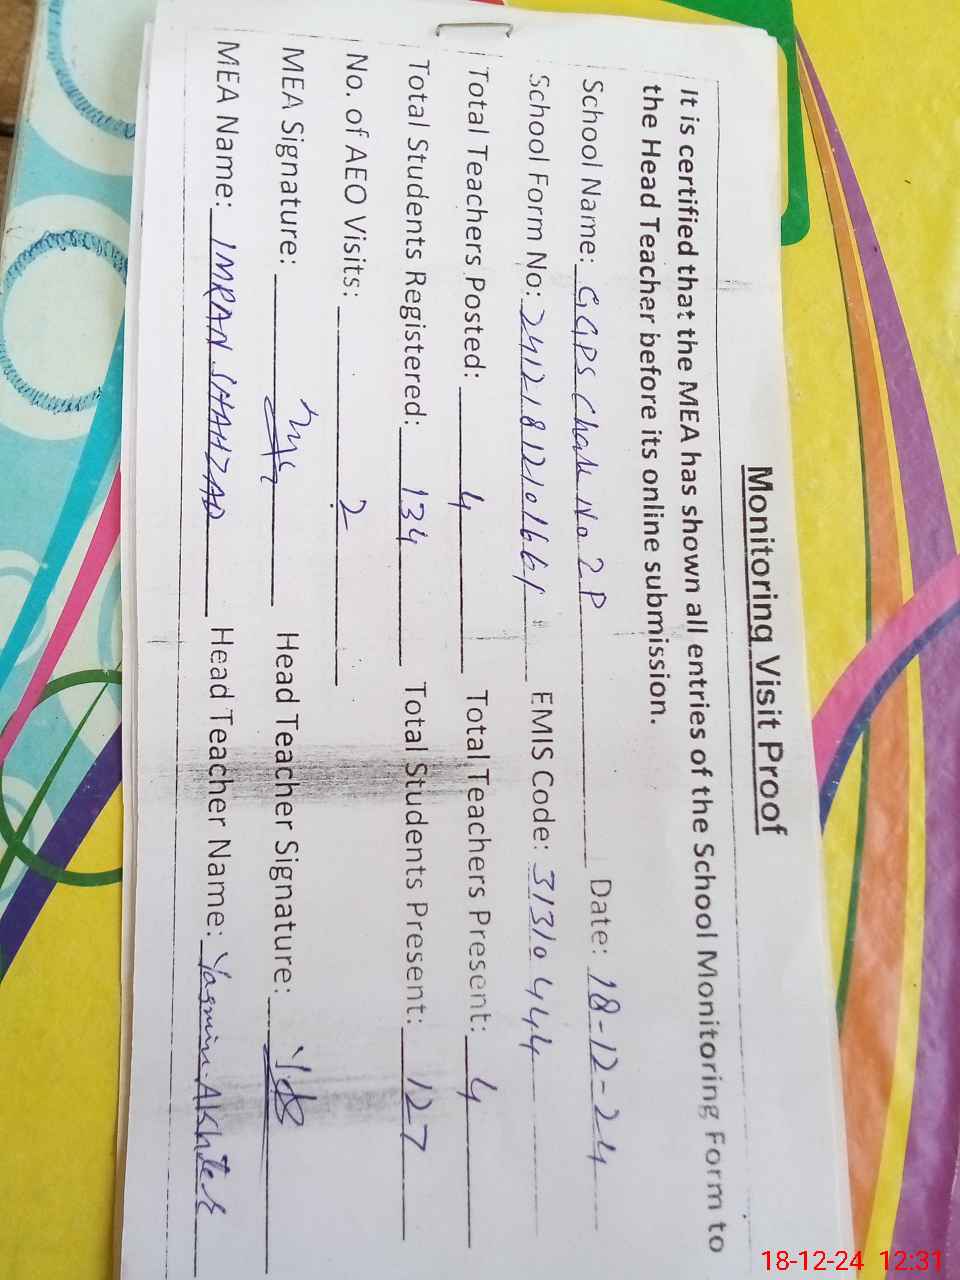 Monitoring Visit Proof
It is certified that the MEA has shown all entries of the School Monitoring Form to
the Head Teacher before its online submission.
School Name: GGPS Chak No 2 P Date: 18-12-24
School Form No: 2412181210166 / EMIS Code: 31310444
Total Teachers Posted: 4 Total Teachers Present: 4
Total Students Registered: 134 Total Students Present: 127
No. of AEO Visits: 2
MEA Signature: Head Teacher Signature:
MEA Name: IMRAN SHAHZAD Head Teacher Name: Yasmin Akhter
18-12-24 12:31